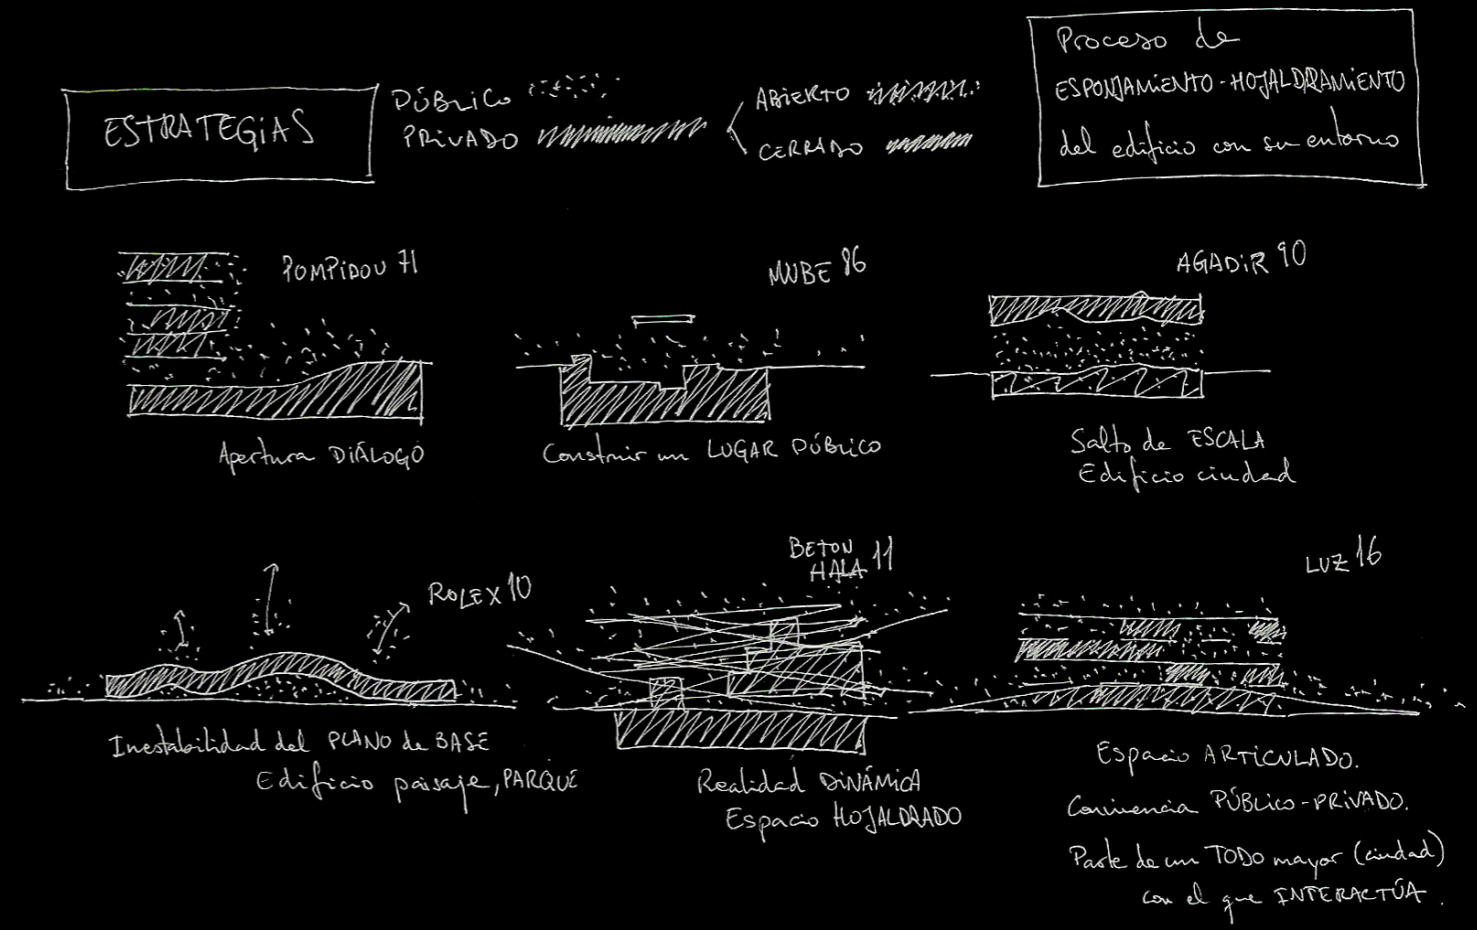 ESTRATEGIAS
PÚBLICO
PRIVADO
ABIERTO
CERRADO
Proceso de
ESPONJAMIENTO-HOJALDRAMIENTO
del edificio con su entorno
POMPIDOU 71
Apertura DIÁLOGO
MUBE 86
Construir un LUGAR PÚBLICO
AGADIR 90
Salto de ESCALA
Edificio ciudad
ROLEX 10
Inestabilidad del PLANO de BASE
Edificio paisaje, PARQUE
BETON
HALA 11
Realidad DINÁMICA
Espacio HOJALDRADO
LUZ 16
Espacio ARTICULADO.
Convivencia PÚBLICO-PRIVADO.
Parte de un TODO mayor (ciudad)
con el que INTERACTÚA.